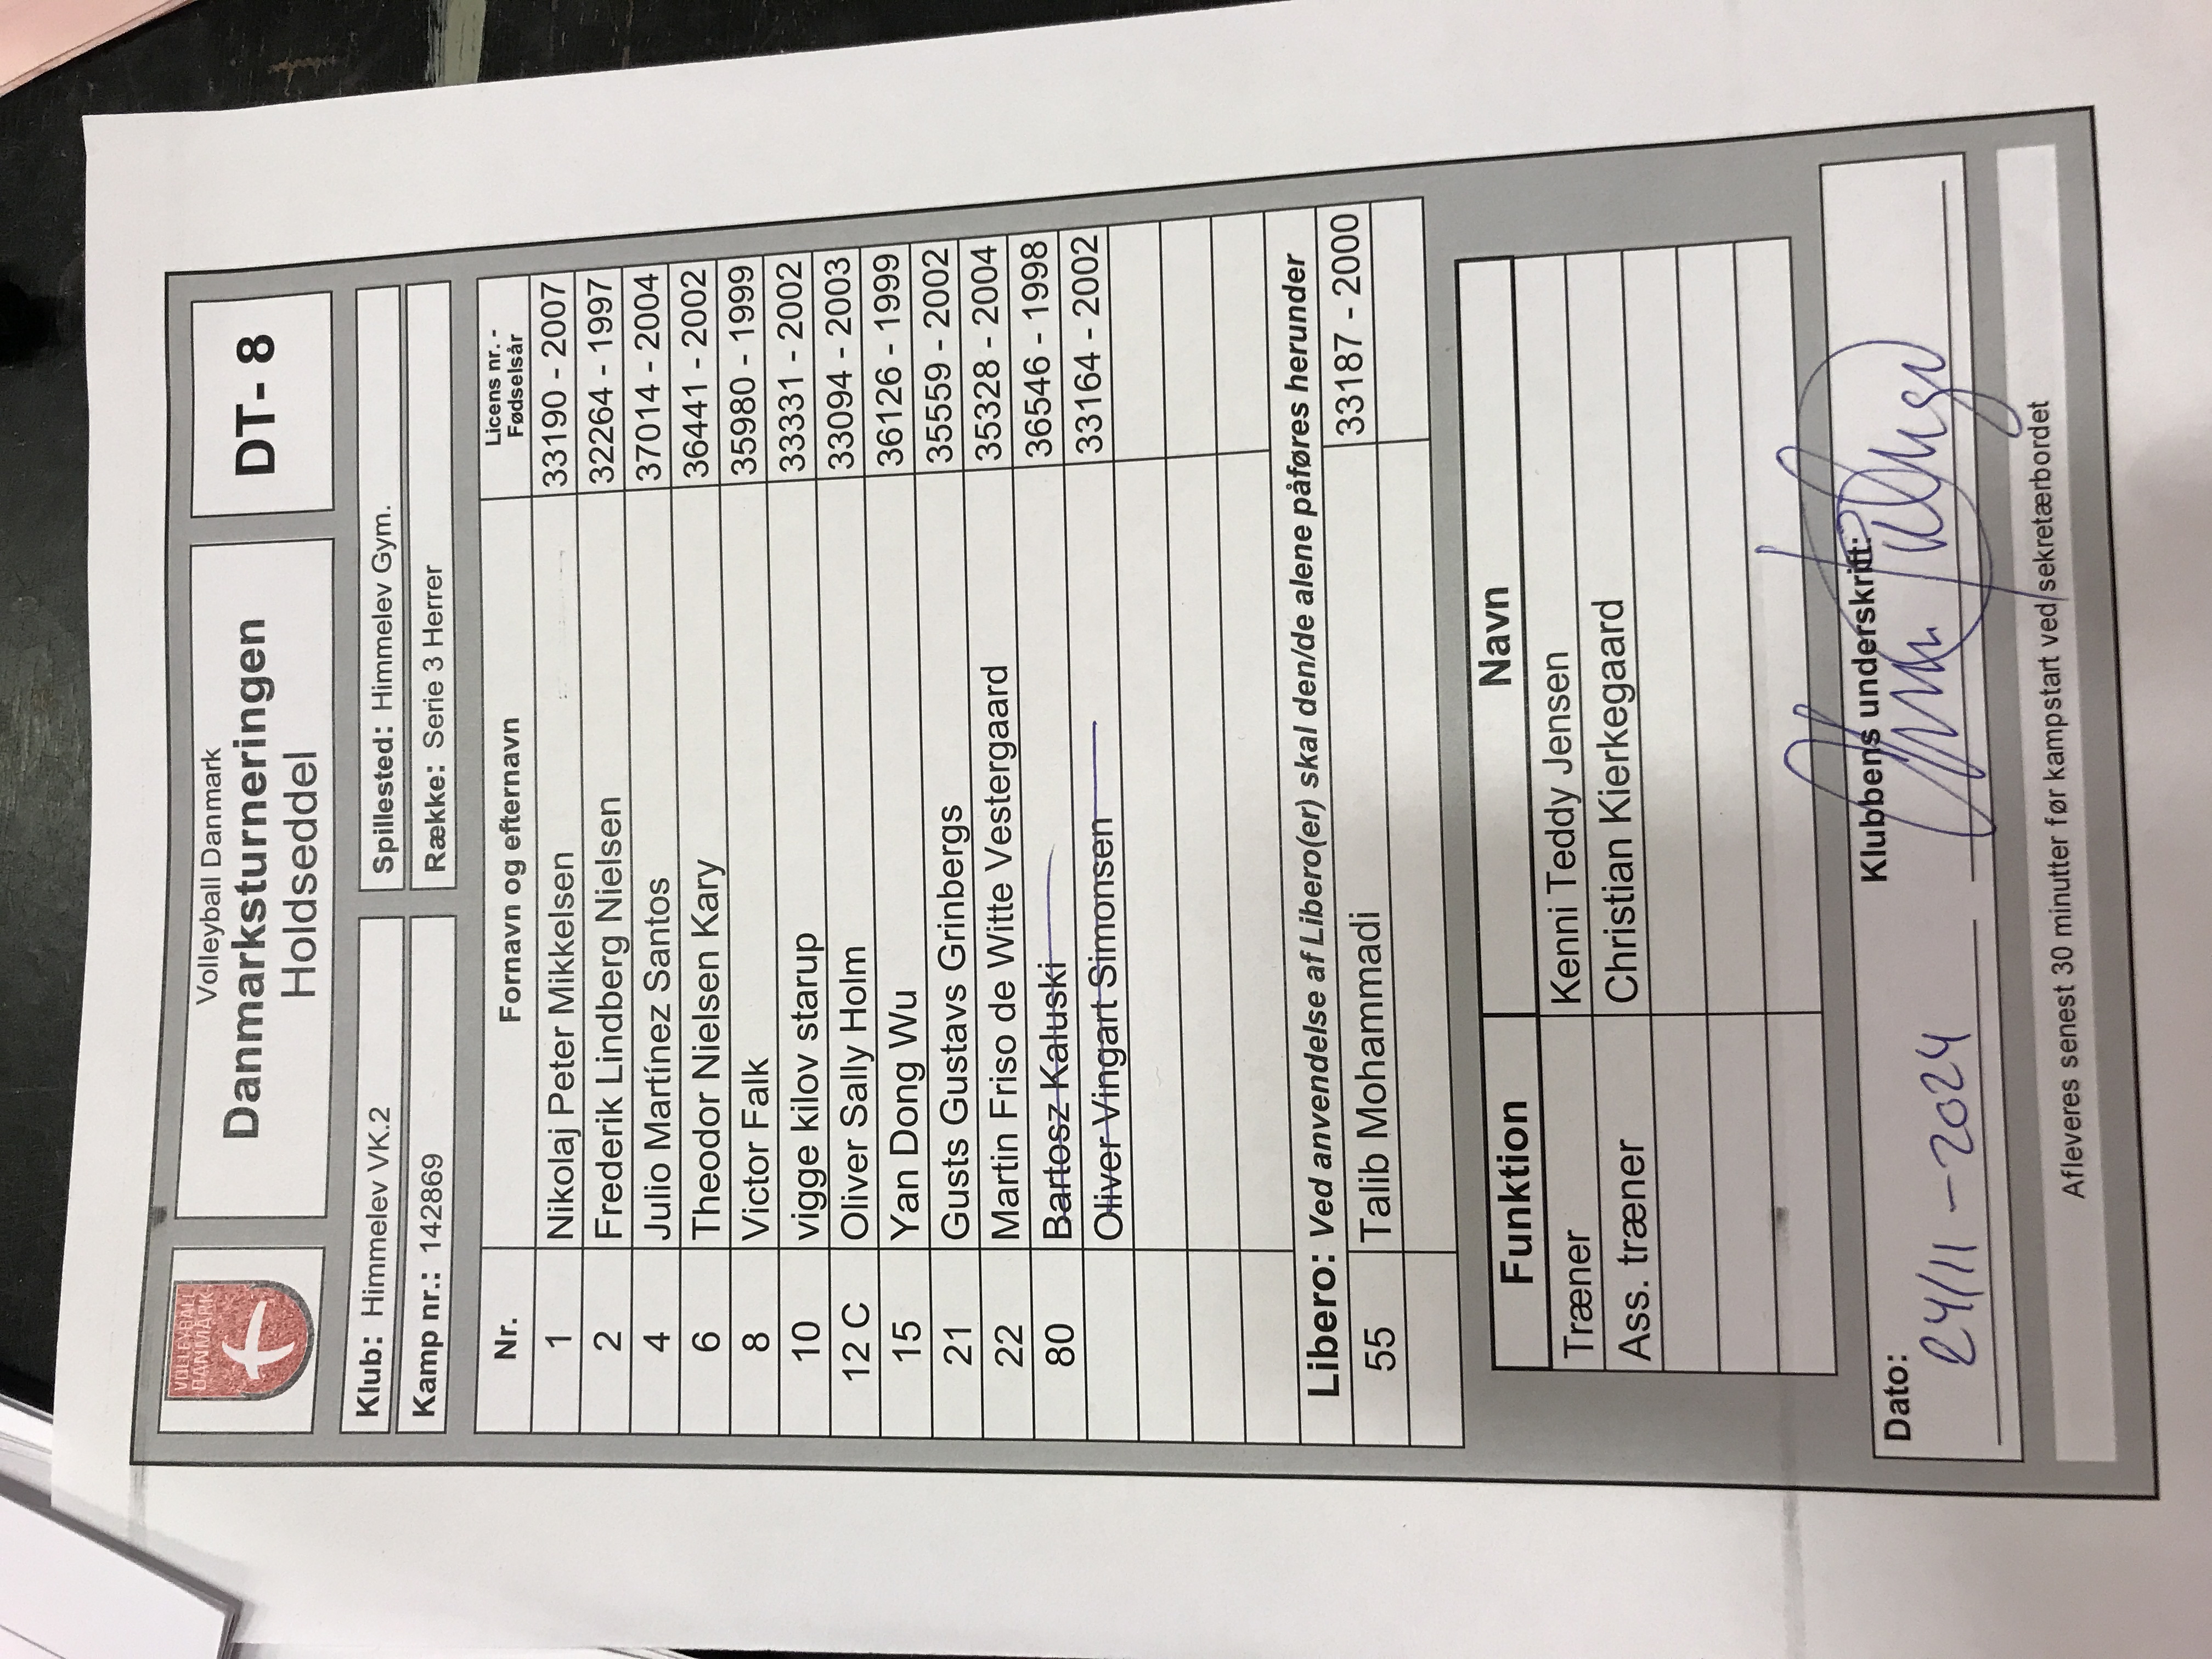 VOLLEYBALL
DANMARK
Volleyball Danmark
Danmarksturneringen
Holdseddel
DT- 8
Klub: Himmelev VK.2
Spillested: Himmelev Gym.
Kamp nr.: 142869
Række: Serie 3 Herrer
Nr. Fornavn og efternavn Licens nr. - Fødselsår
1 Nikolaj Peter Mikkelsen 33190 - 2007
2 Frederik Lindberg Nielsen 32264 - 1997
4 Julio Martínez Santos 37014 - 2004
6 Theodor Nielsen Kary 36441 - 2002
8 Victor Falk 35980 - 1999
10 vigge kilov starup 33331 - 2002
12 C Oliver Sally Holm 33094 - 2003
15 Yan Dong Wu 36126 - 1999
21 Gusts Gustavs Grinbergs 35559 - 2002
22 Martin Friso de Witte Vestergaard 35328 - 2004
80 Bartosz Kaluski 36546 - 1998
Oliver Vingart Simonsen 33164 - 2002
Libero: Ved anvendelse af Libero(er) skal den/de alene påføres herunder
55 Talib Mohammadi 33187 - 2000
Funktion Navn
Træner Kenni Teddy Jensen
Ass. træner Christian Kierkegaard
Dato: Klubbens underskrift:
24/11 - 2024
Afleveres senest 30 minutter før kampstart ved sekretærbordet